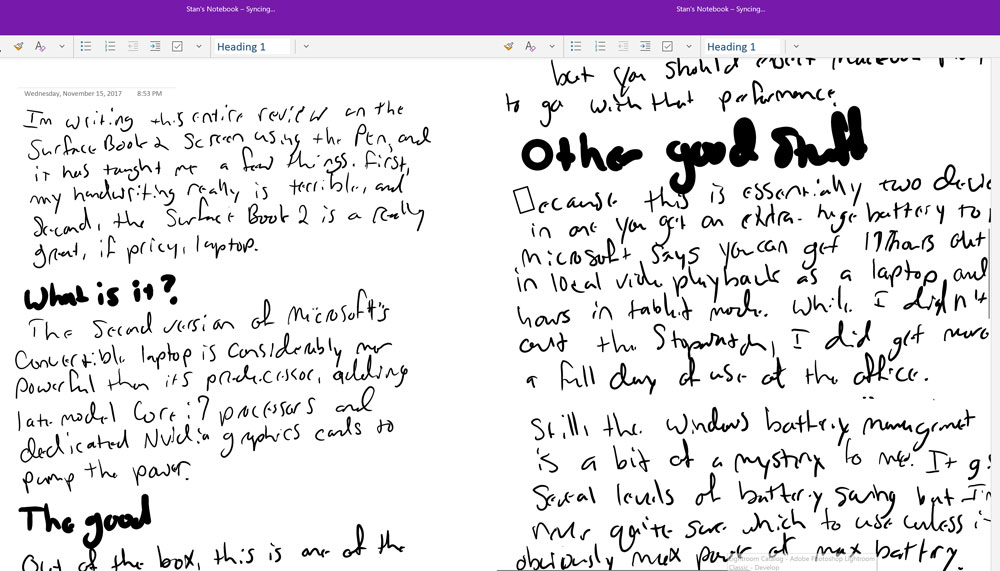 Stan's Notebook – Syncing...
Heading 1
Wednesday, November 15, 2017 8:53 PM
I'm writing this entire review on the
Surface Book 2 Screen using the Pen, and
it has taught me a few things. First,
my handwriting really is terrible, and
Second, the Surface Book 2 is a really
great, if pricy, laptop.
What is it?
The Second version of Microsoft's
Convertible laptop is considerably more
powerful than its predecessor, adding
late model Core i7 processors and
dedicated Nvidia graphics cards to
pump the power.
The good
Out of the box, this is one of the
Stan's Notebook – Syncing...
Heading 1
but you should expect
to go with that performance.
Other good Stuff
Because this is essentially two device
in one you get an extra-huge battery to
Microsoft says you can get 17 hours out
in local video playback as a laptop and
hours in tablet mode. While I didn't
out the Stopwatch, I did get more
a full day of use at the office.
Still, the Windows battery management
is a bit of a mystery to me. It g
Several levels of battery saving but I'm
never quite sure which to use unless i
obviously max power at max battery.
Lightroom Catalog – Adobe Photoshop Lightroom
Classic - Develop